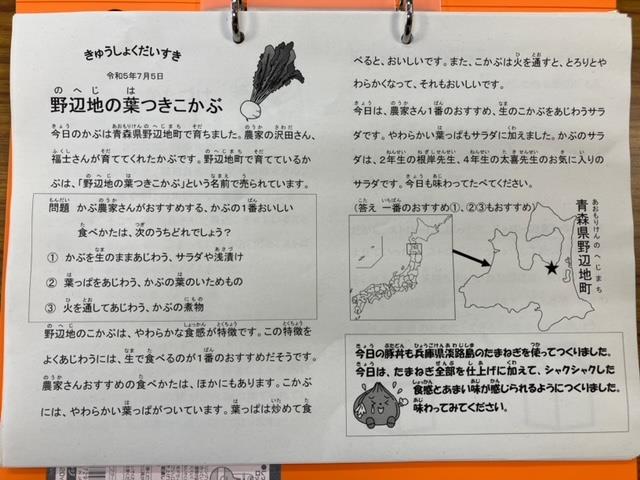 きゅうしょくだいすき
令和5年7月5日
野辺地の葉つきこかぶ
今日のかぶは青森県野辺地町で育ちました。農家の沢田さん、
福士さんが育ててくれたかぶです。野辺地町で育てているか
ぶは、「野辺地の葉つきこかぶ」という名前で売られています。
問題 かぶ農家さんがおすすめする、かぶの1番おいしい
食べかたは、次のうちどれでしょう?
① かぶを生のままあじわう、サラダや浅漬け
② 葉っぱをあじわう、かぶの葉のいためもの
③ 火を通してあじわう、かぶの煮物
野辺地のこかぶは、やわらかな食感が特徴です。この特徴を
よくあじわうには、生で食べるのが1番おすすめだそうです。
農家さんおすすめの食べかたは、ほかにもあります。こかぶ
には、やわらかい葉っぱがついています。葉っぱは炒めて食
べると、おいしいです。また、こかぶは火を通すと、とろりとや
わらかくなって、それもおいしいです。
今日は、農家さん1番のおすすめ、生のこかぶをあじわうサラ
ダです。やわらかい葉っぱもサラダに加えました。かぶのサラ
ダは、2年生の根岸先生、4年生の太喜先生のお気に入りの
サラダです。今日も味わってたべてください。
(答え 一番のおすすめ①、②③もおすすめ)
青森県野辺地町
今日の豚丼も兵庫県淡路島のたまねぎを使ってつくりました。
今日は、たまねぎ全部を仕上げに加えて、シャクシャクした
食感とあまい味が感じられるようにつくりました。
味わってみてください。